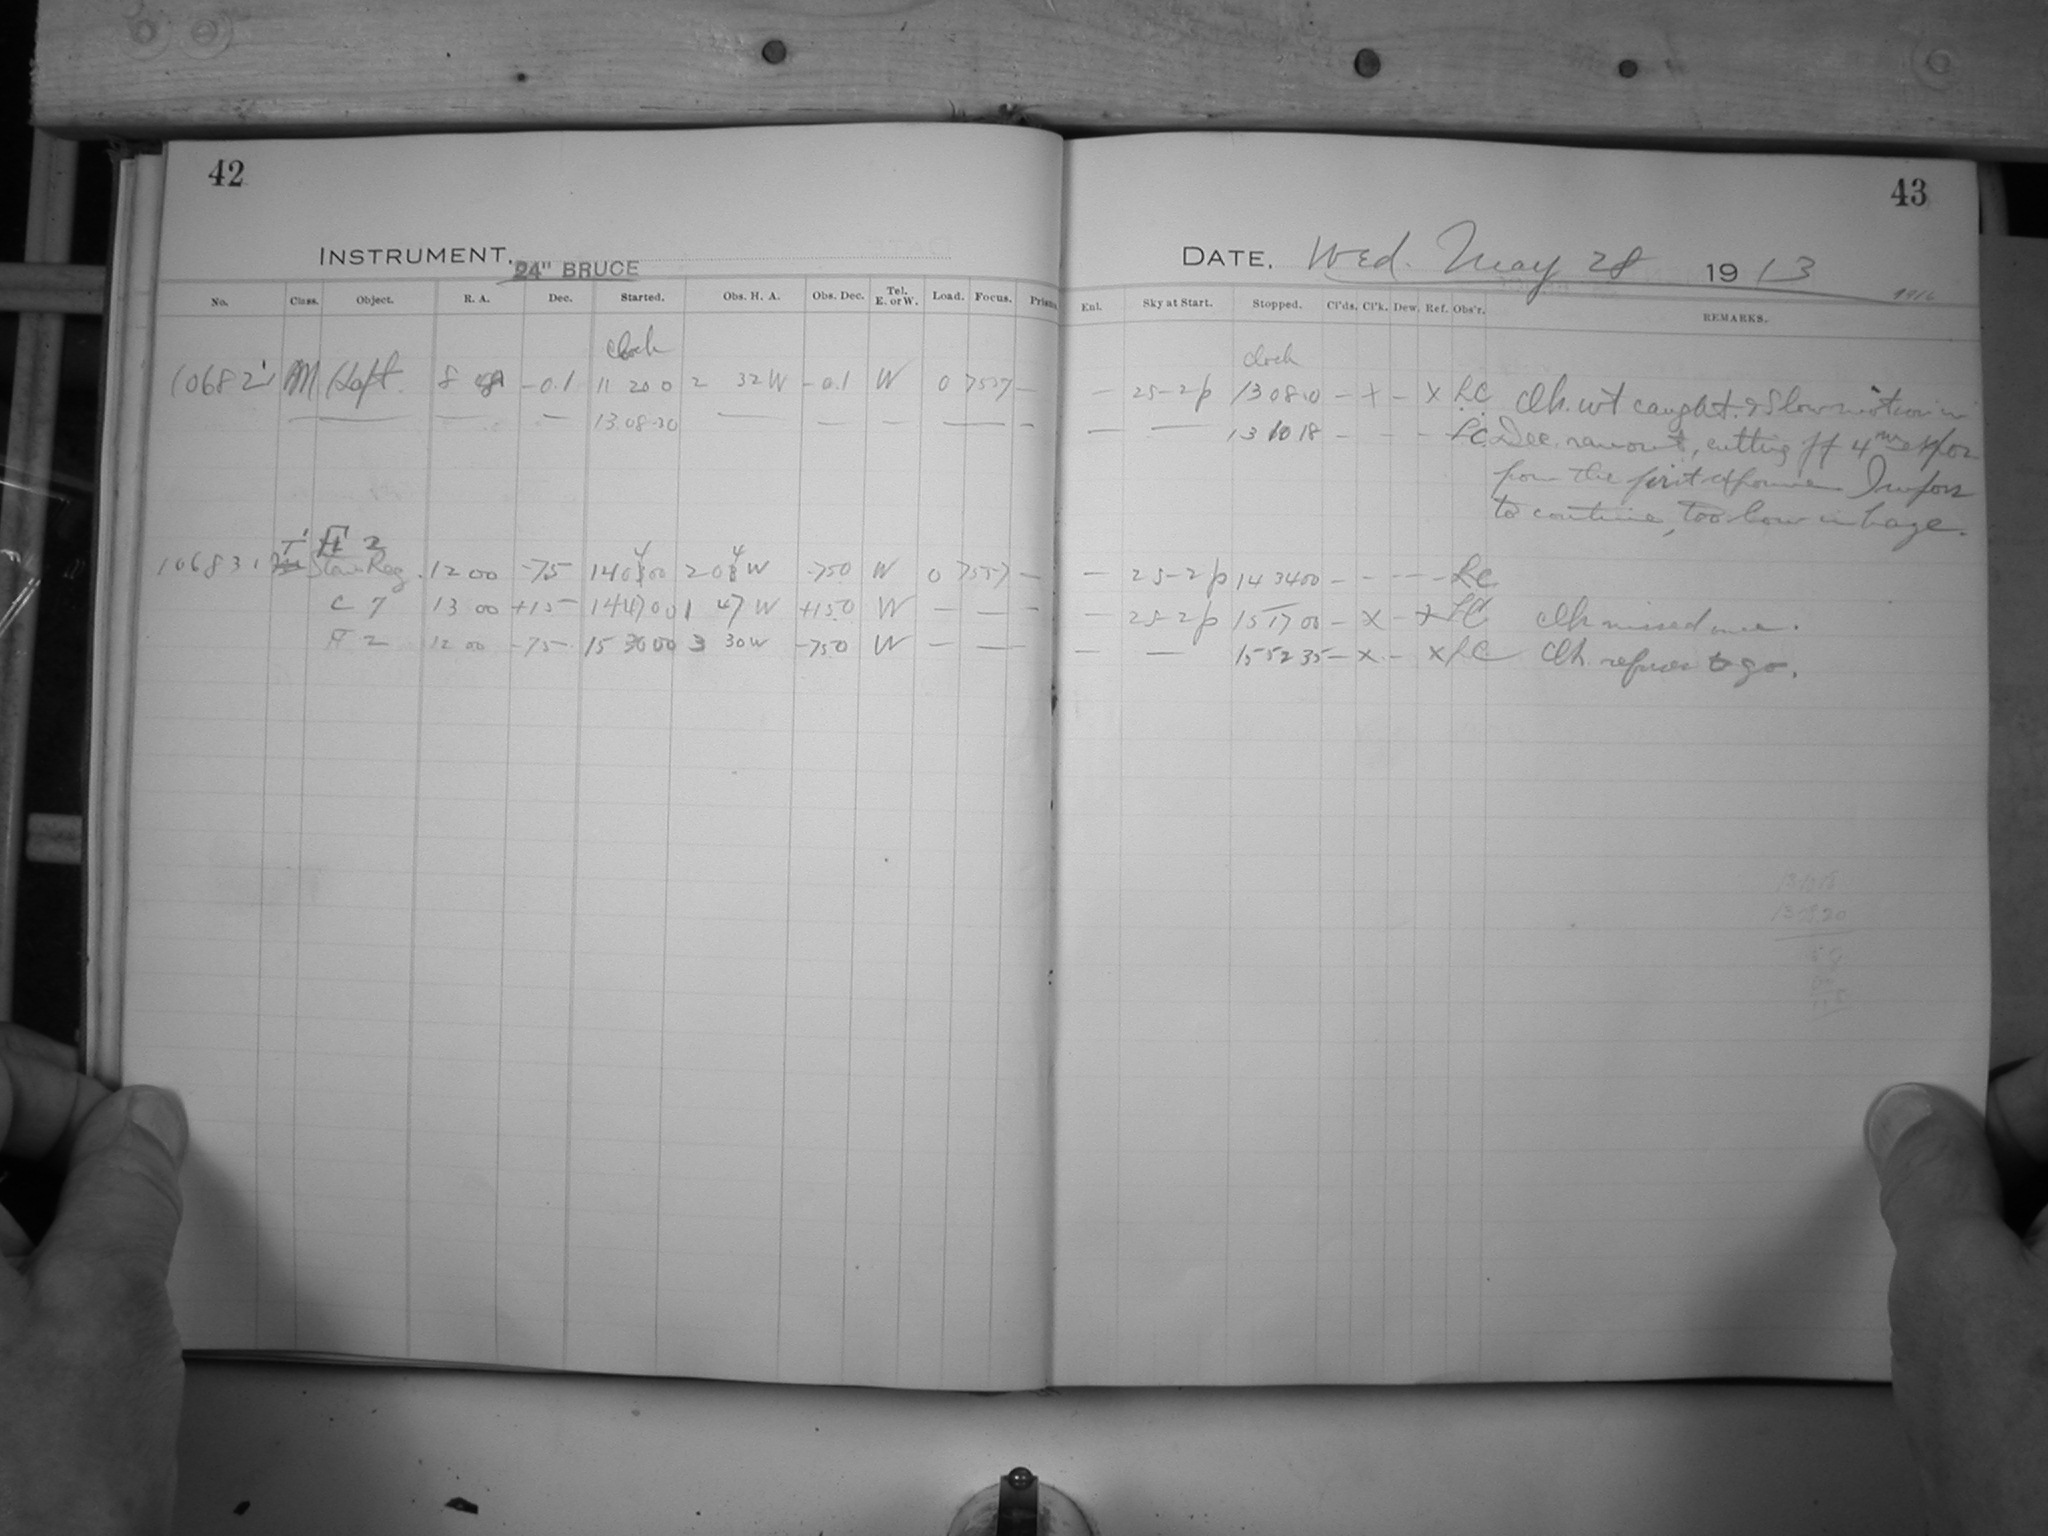 42
43
INSTRUMENT. 24" BRUCE
DATE. Wed. May 28 1913
No. Class. Object. R. A. Dec. Started. Obs. H. A. Obs. Dec. Tel. E. or W. Load. Focus. Prisms.
Enl. Sky at Start. Stopped. Cl'ds. Cl'k. Dew. Ref. Obs'r. REMARKS.
clock clock
10682 M Hapt. 8 -0.1 11 20 0 2 32 W -0.1 W 0 7557 — — 25-2p 13 08 10 - x - x LC Clk. wt caught. & Slow motion in
— — — 13 08 30 — — — — — — — 13 10 18 - - - - LC Dec. ran out, cutting off 4 m expos
from the first exposure
to continue, too low
H 2
10683 12 00 -75 14 0 00 2 0 W -750 W 0 7557 — — 25-2p 14 34 00 - - - - LC
C 7 13 00 +15 14 47 00 1 47 W +150 W — — - — 25-2p 15 17 00 - x - x LC Clk missed once.
H 2 12 00 -75 15 30 00 3 30 W -750 W — — — — 15 52 35 - x - x LC Clk. refuses to go.